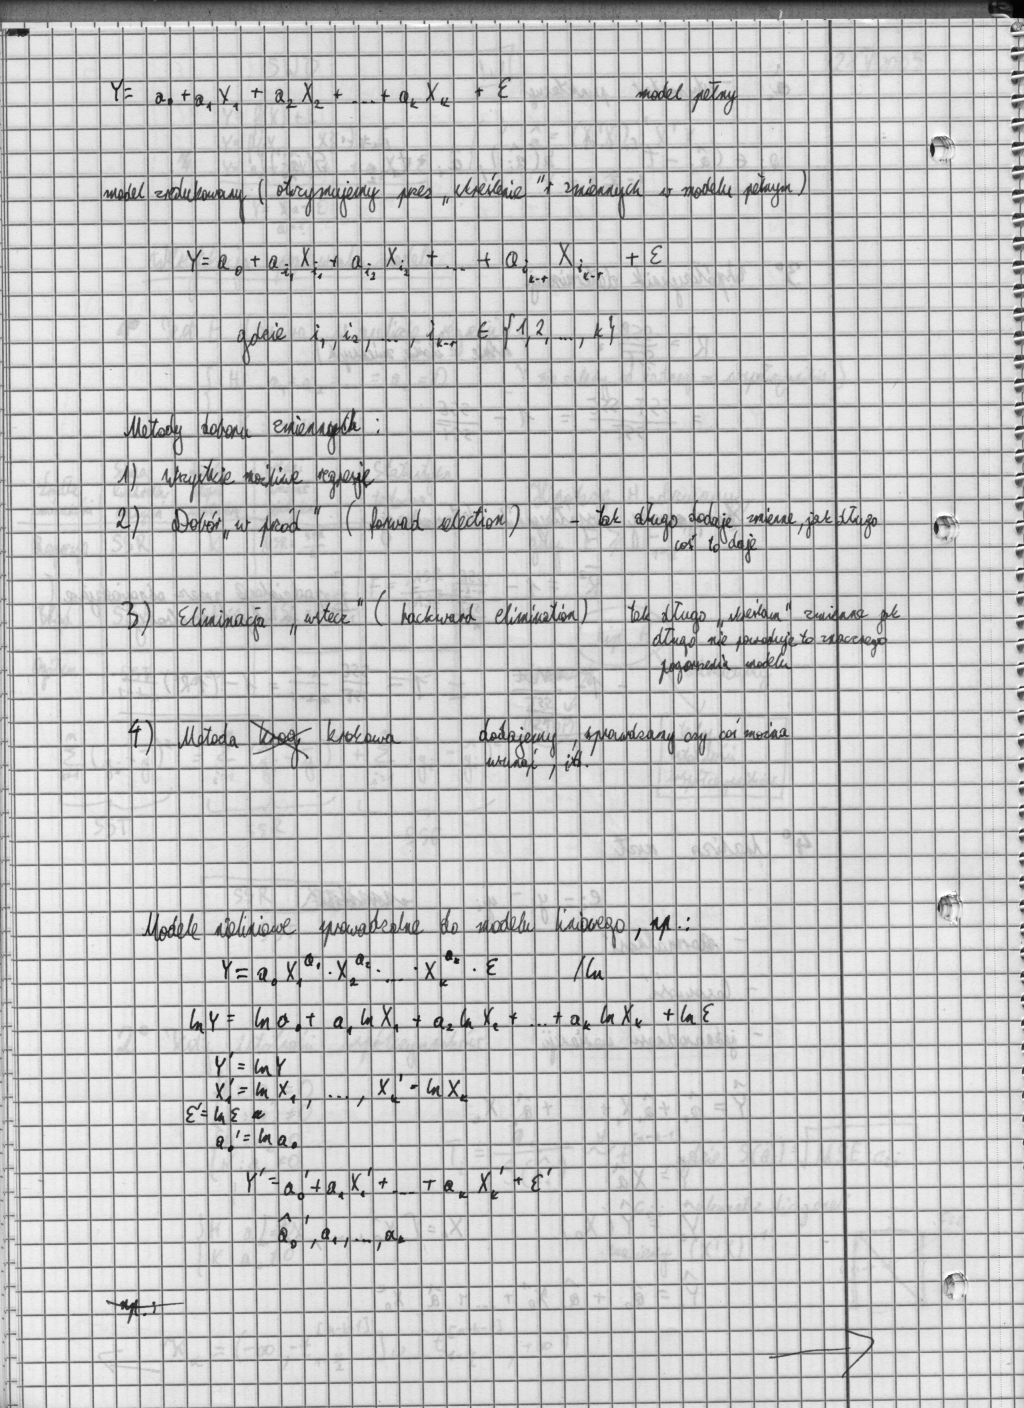 Y = a₀ + a₁ X₁ + a₂ X₂ + .... + aₖ Xₖ + ε model pełny
model zredukowany ( otrzymujemy przez „skreślenie" r zmiennych w modelu pełnym )
Y = a₀ + a_{i₁} X_{i₁} + a_{i₂} X_{i₂} + ... + a_{i_{k-r}} X_{i_{k-r}} + ε
gdzie i₁, i₂, ..., i_{k-r} ∈ {1, 2, ..., k}
Metody doboru zmiennych :
1) Wszystkie możliwe regresje
2) Dobór „w przód" ( forward selection ) - tak długo dodaję zmienne, jak długo
coś to daje
3) Eliminacja „wstecz" ( backward elimination ) tak długo „skreślam" zmienne jak
długo nie powoduje to znacznego
pogorszenia modelu
4) Metoda krokowa dodajemy, sprawdzamy czy coś można
usunąć, itd.
Modele nieliniowe sprowadzalne do modelu liniowego, np.:
Y = a₀ X₁^{a₁} · X₂^{a₂} · ... · Xₖ^{aₖ} · ε /ln
ln Y = ln a₀ + a₁ ln X₁ + a₂ ln X₂ + ... + aₖ ln Xₖ + ln ε
Y' = ln Y
X₁' = ln X₁, ..., Xₖ' = ln Xₖ
ε' = ln ε
a₀' = ln a₀
Y' = a₀' + a₁ X₁' + ... + aₖ Xₖ' + ε'
â₀', a₁, ..., aₖ
np.: